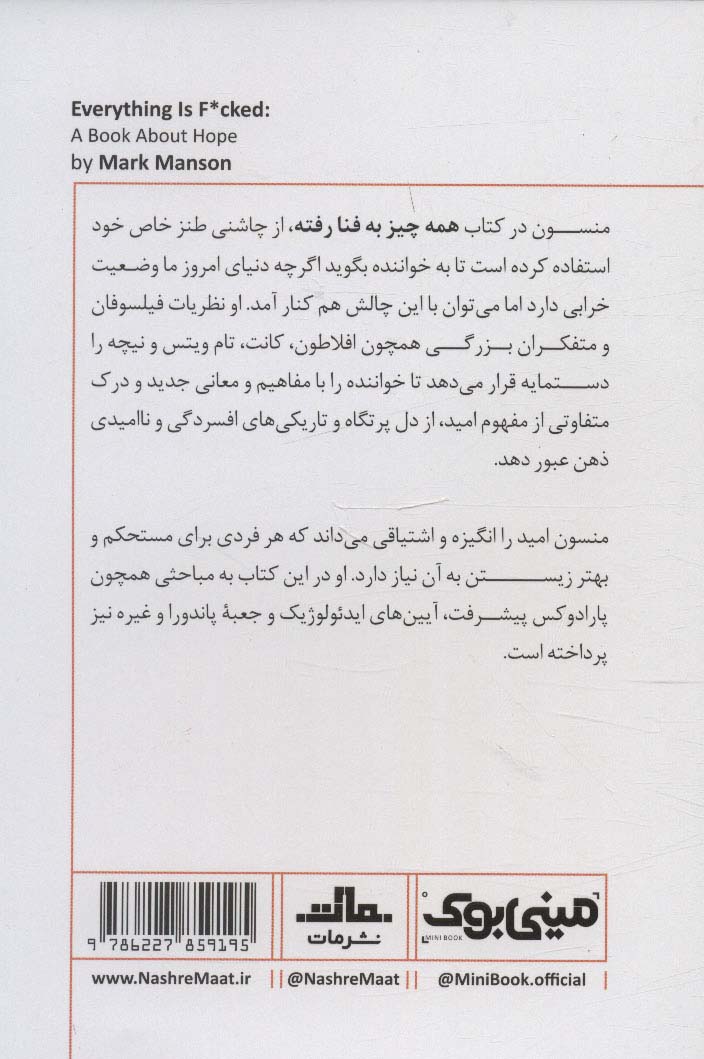 Everything Is F*cked:
A Book About Hope
by Mark Manson
منسون در کتاب همه چیز به فنا رفته، از چاشنی طنز خاص خود
استفاده کرده است تا به خواننده بگوید اگرچه دنیای امروز ما وضعیت
خرابی دارد اما می‌توان با این چالش هم کنار آمد. او نظریات فیلسوفان
و متفکران بزرگی همچون افلاطون، کانت، تام ویتس و نیچه را
دستمایه قرار می‌دهد تا خواننده را با مفاهیم و معانی جدید و درک
متفاوتی از مفهوم امید، از دل پرتگاه و تاریکی‌های افسردگی و ناامیدی
ذهن عبور دهد.
منسون امید را انگیزه و اشتیاقی می‌داند که هر فردی برای مستحکم و
بهتر زیستن به آن نیاز دارد. او در این کتاب به مباحثی همچون
پارادوکس پیشرفت، آیین‌های ایدئولوژیک و جعبهٔ پاندورا و غیره نیز
پرداخته است.
مینی بوک
MINI BOOK
مات
نشر مات
9 786227 859195
www.NashreMaat.ir
@NashreMaat
@MiniBook.official